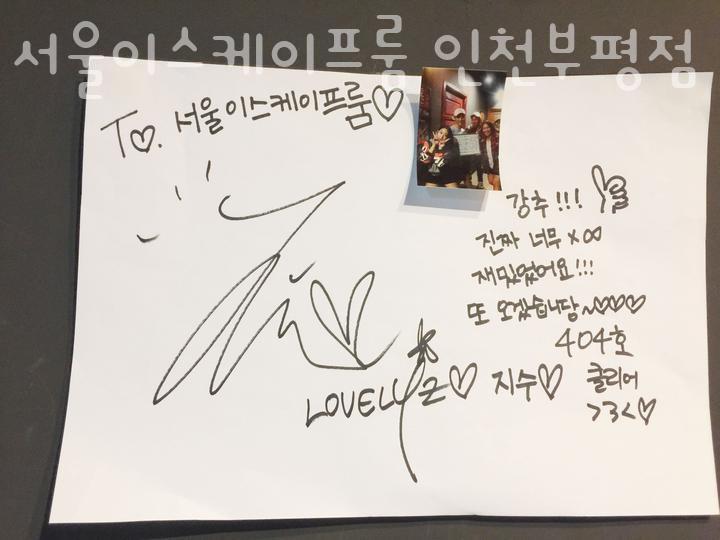 서울이스케이프룸 인천부평점
To. 서울이스케이프룸♡
강추!!!
진짜 너무×∞
재밌었어요!!!
또 오겠습니담~♡♡♡
404호
클리어
>3<♡
LOVELYZ♡ 지수♡